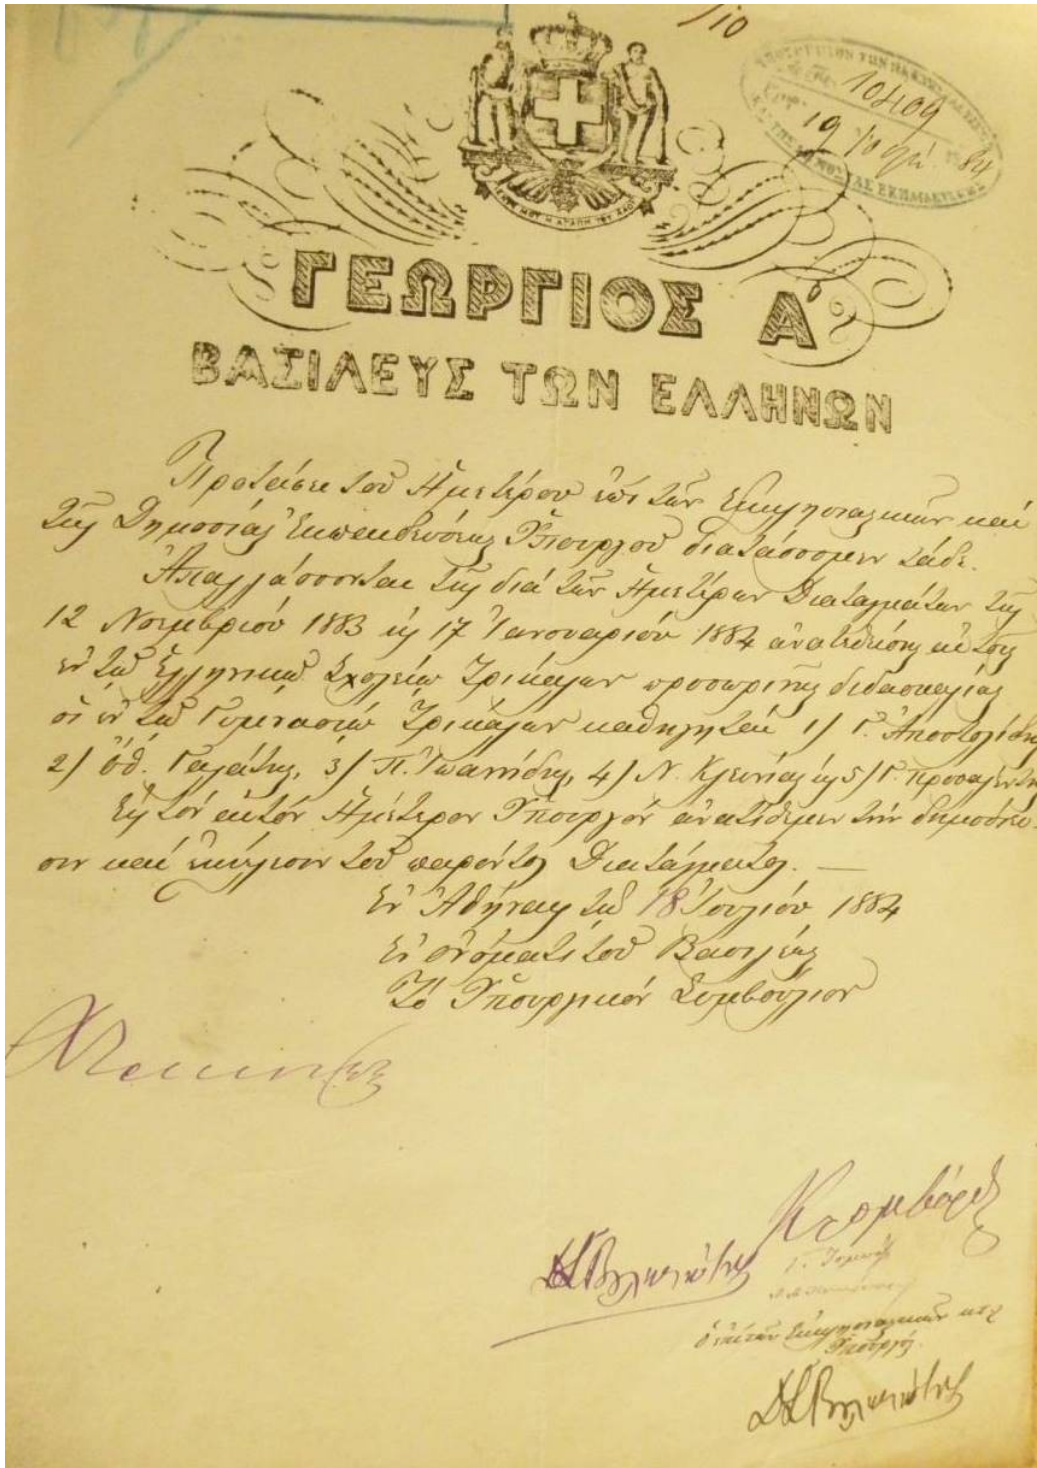 10409
19
84
ΙΣΧΥΣ ΜΟΥ Η ΑΓΑΠΗ ΤΟΥ ΛΑΟΥ
ΓΕΩΡΓΙΟΣ Α΄
ΒΑΣΙΛΕΥΣ ΤΩΝ ΕΛΛΗΝΩΝ
Προτάσει τοῦ Ἡμετέρου ἐπὶ τῶν Ἐκκλησιαστικῶν καὶ
τῆς Δημοσίας Ἐκπαιδεύσεως Ὑπουργοῦ διατάσσομεν τάδε.
Ἀπαλλάσσονται τῆς διὰ τῶν Ἡμετέρων Διαταγμάτων τῆς
12 Νοεμβρίου 1883 καὶ 17 Ἰανουαρίου 1884 ἀνατεθείσης αὐτοῖς
ἐν τῷ Ἑλληνικῷ Σχολείῳ Τρικάλων προσωρινῆς διδασκαλίας
οἱ ἐν τῷ Γυμνασίῳ Τρικάλων καθηγηταί 1) Γ. Ἀποστολίδης
2) Ὀδ. Γαλάτης, 3) Π. Ἰωαννίδης, 4) Ν. Κλεινίας καὶ 5) Γ.
Εἰς τὸν αὐτὸν Ἡμέτερον Ὑπουργὸν ἀνατίθεμεν τὴν δημοσίευ-
σιν καὶ ἐκτέλεσιν τοῦ παρόντος Διατάγματος. —
Ἐν Ἀθήναις τῇ 18 Ἰουλίου 1884
Ἐν ὀνόματι τοῦ Βασιλέως
Τὸ Ὑπουργικὸν Συμβούλιον
Κ Λομβάρδος
ΔΣΒουλπιώτης
ὁ ἐπὶ τῶν Ἐκκλησιαστικῶν κτλ
Ὑπουργός
ΔΣΒουλπιώτης